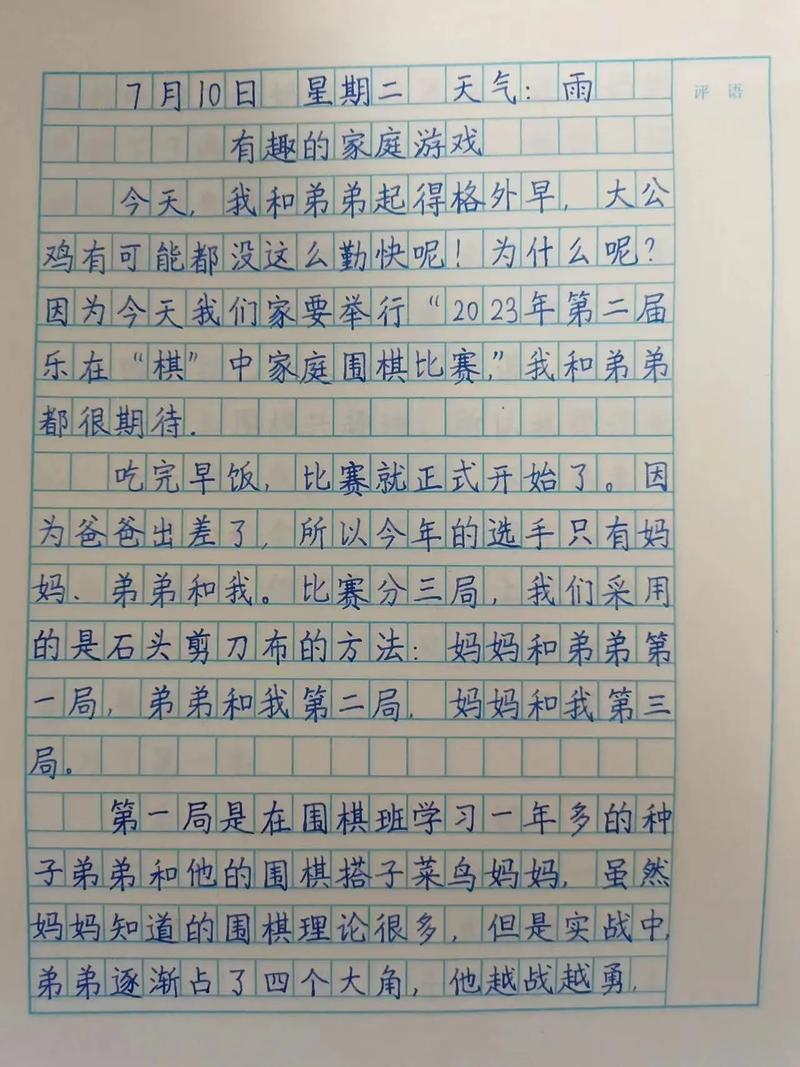 7月10日 星期二 天气：雨
评语
有趣的家庭游戏
今天，我和弟弟起得格外早，大公
鸡有可能都没这么勤快呢！为什么呢？
因为今天我们家要举行“2023年第二届
乐在“棋”中家庭围棋比赛，”我和弟弟
都很期待．
吃完早饭，比赛就正式开始了。因
为爸爸出差了，所以今年的选手只有妈
妈、弟弟和我。比赛分三局，我们采用
的是石头剪刀布的方法：妈妈和弟弟第
一局，弟弟和我第二局，妈妈和我第三
局。
第一局是在围棋班学习一年多的种
子弟弟和他的围棋搭子菜鸟妈妈，虽然
妈妈知道的围棋理论很多，但是实战中，
弟弟逐渐占了四个大角，他越战越勇，